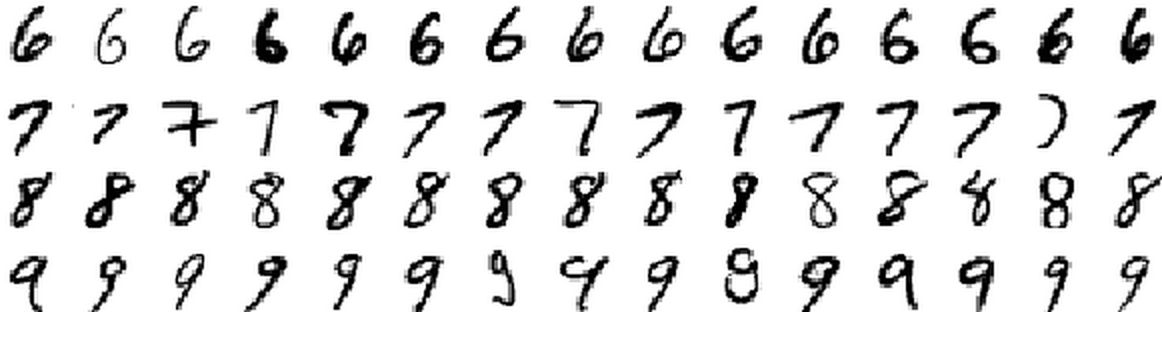 6 6 6 6 6 6 6 6 6 6 6 6 6 6 6
7 7 7 7 7 7 7 7 7 7 7 7 7 7 7
8 8 8 8 8 8 8 8 8 8 8 8 8 8 8
9 9 9 9 9 9 9 9 9 9 9 9 9 9 9